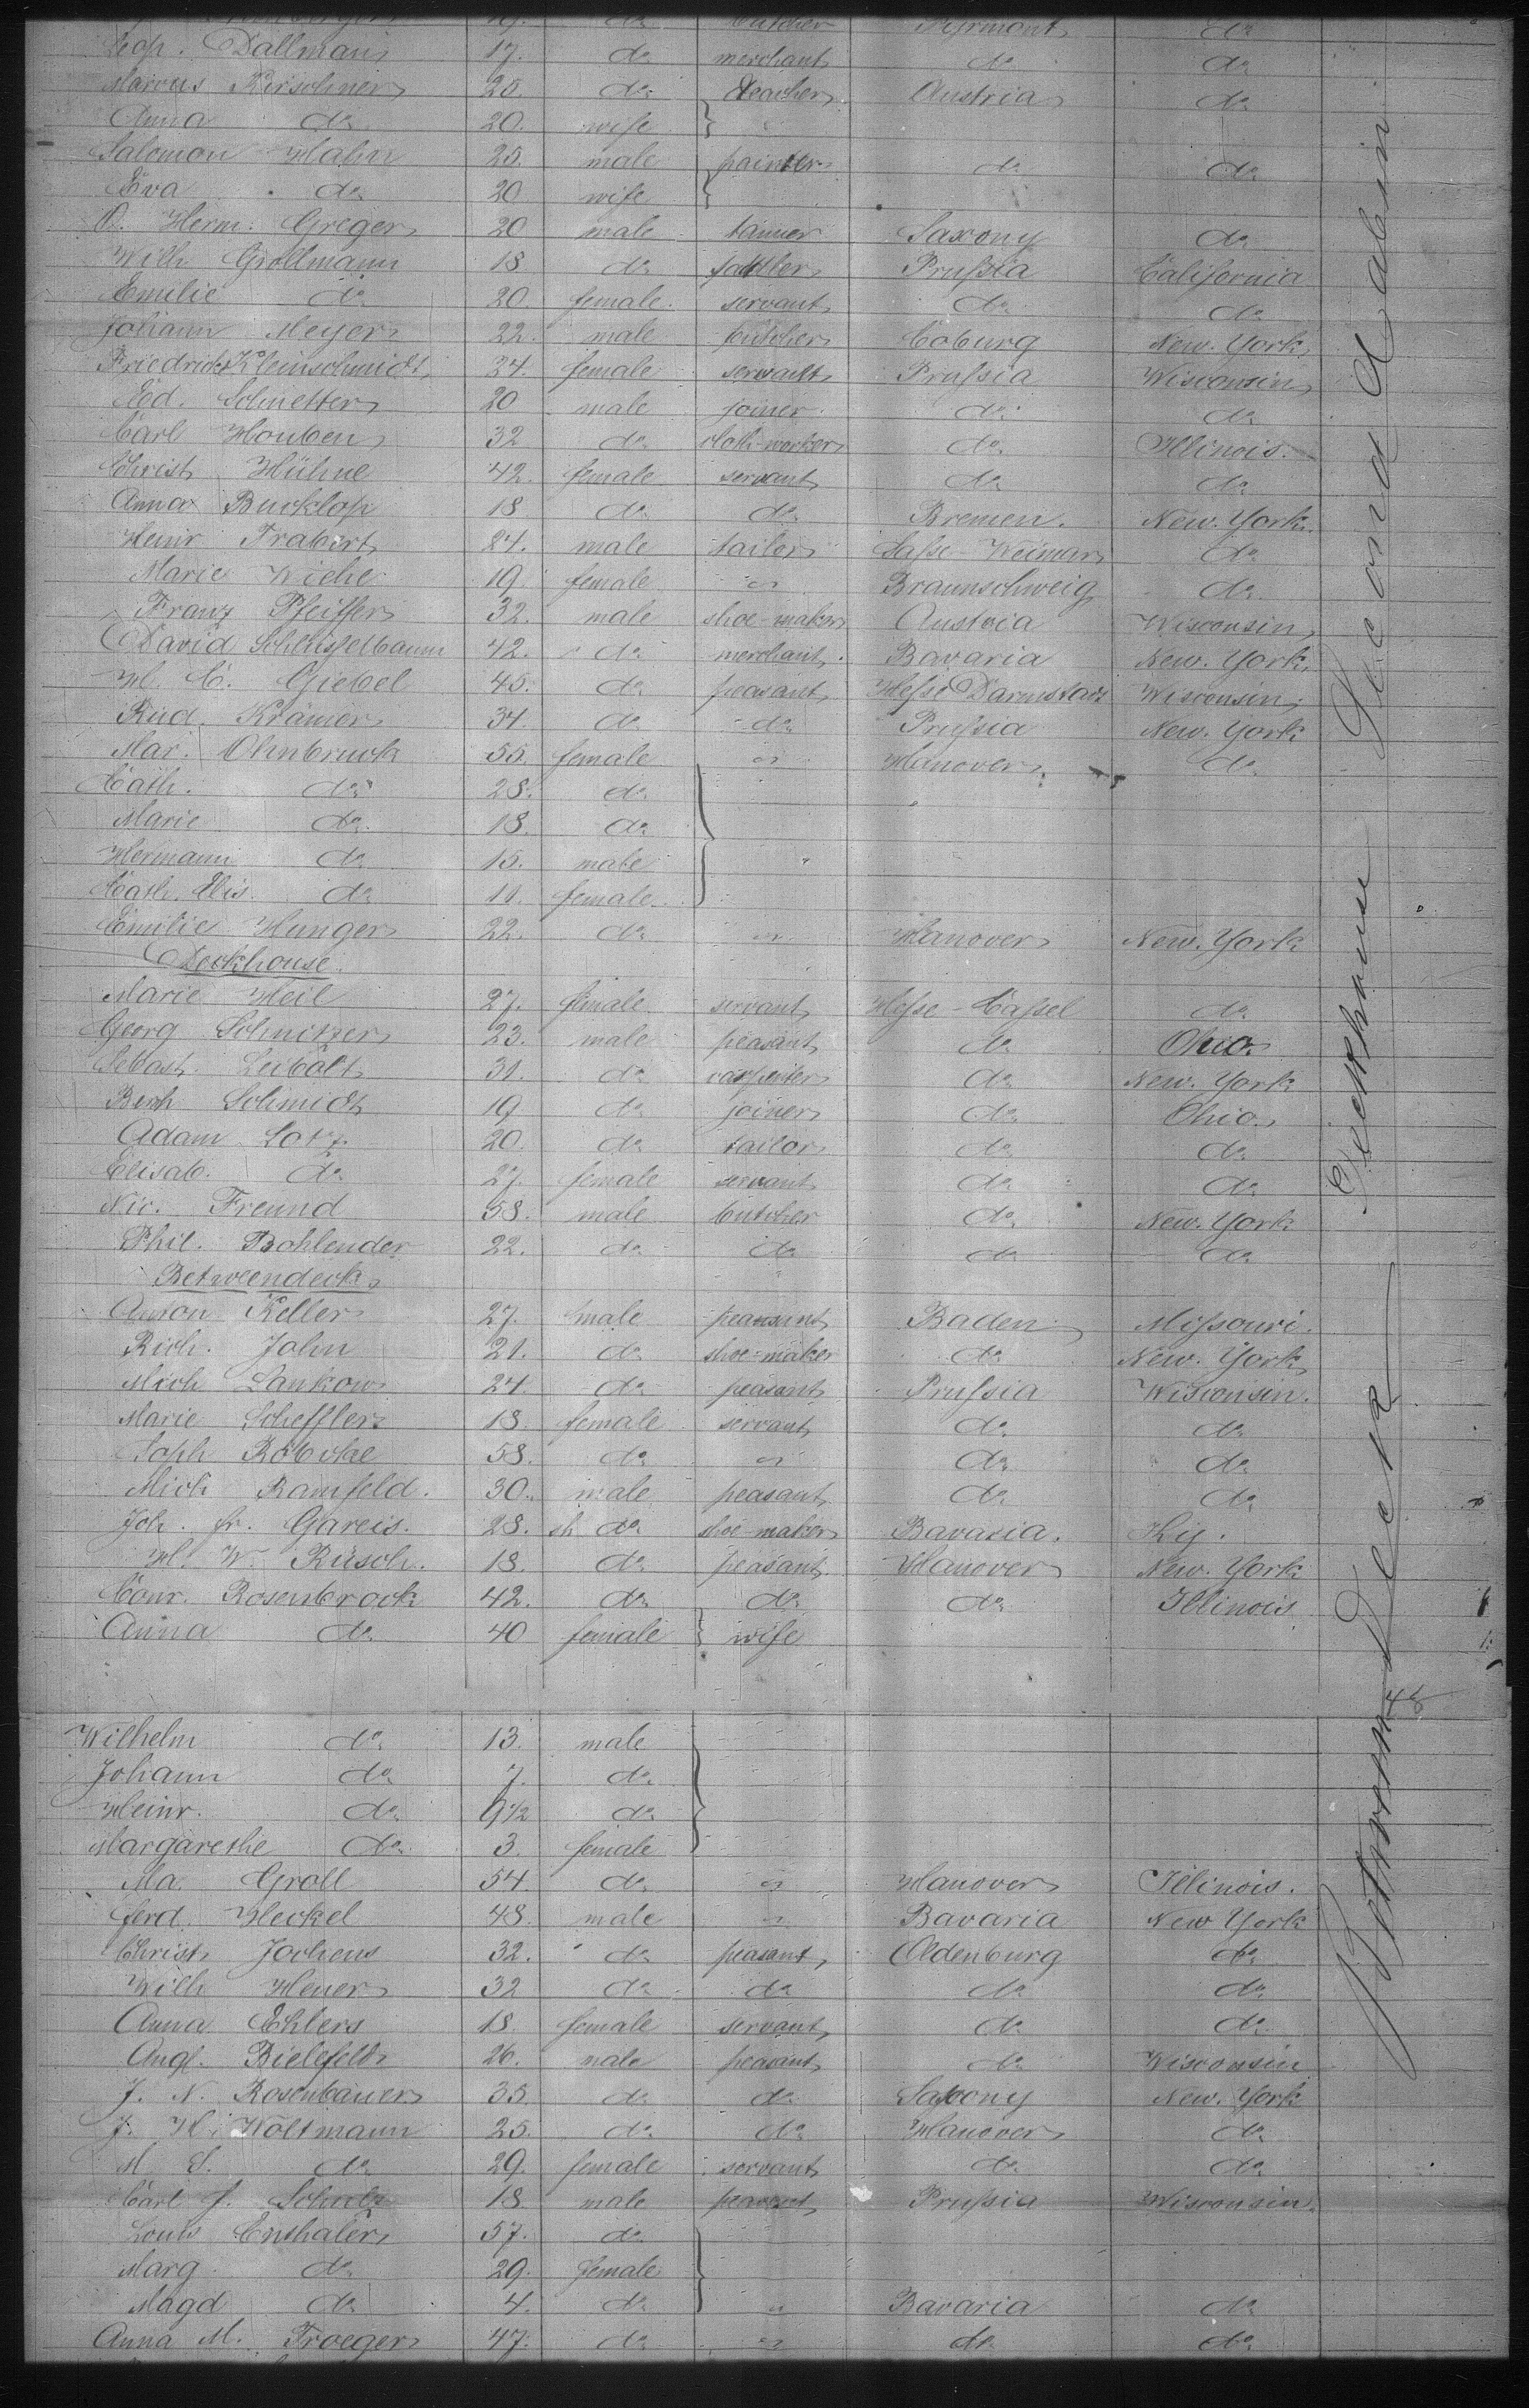 19. do butcher Pyrmont do
Leop. Dallmann 17. do merchant do do
Marcus Kirschner 25. do teacher Austria do
Anna do 20. wife
Salomon Hahn 25. male painter do do
Eva do 20 wife
O. Herm. Greger 20 male tanner Saxony do
Wilh Grollmann 18 do sattler Prussia California
Emilie do 20 female servant do do
Johann Meyer 22. male butcher Coburg New. York
Friedricke Kleinschmidt 34. female servant Prussia Wisconsin
Ed. Schuetter 20 male joiner do do
Carl Houben 32 do cloth-worker do Illinois.
Christ Hühne 42. female servant do do
Anna Bucklop 18 do do Bremen. New. York.
Heinr Trabert 24. male tailor Sasse-Weimar do
Marie Wiehe 19. female " Braunschweig do
Franz Pfeiffer 32. male shoe-maker Austria Wisconsin
David Schlüsselbaum 42. do merchant Bavaria New. York.
H. C. Giebel 45. do peasant Hesse Darmstadt Wisconsin
Rud. Krämer 34. do do Prussia New. York
Mar. Ohnbruck 55. female " Hanover do
Cath. do 28. do
Marie do 18. do
Hermann do 15. male
Cath. Elis. do 11. female
Emilie Hunger 22. do " Hanover New. York
Deckhouse.
Marie Heil 27. female servant Hesse-Cassel do
Georg Schnitzer 23. male peasant do Ohio
Sebast. Leibolt 31. do carpenter do New. York
Bernh Schmidt 19 do joiner do Ohio
Adam Lotz 20. do tailor do do
Elisab. do 27. female servant do do
Nic. Freund 58. male butcher do New. York
Phil. Bohlender 22. do do do do
Betweendeck
Anton Keller 27. male peasant Baden Missouri.
Rich. Jahn 21. do shoe-maker do New. York
Mich Lankow 24. do peasant Prussia Wisconsin.
Marie Scheffler 18. female servant do do
Soph Robcke 58. do " do do
Mich Ramfeld. 30. male peasant do do
Joh. fr. Gareis. 28. do shoe-maker Bavaria. Ky.
H. W. Rüsch. 18. do peasant Hanover New. York
Conr. Rosenbrock 42. do do do Illinois
Anna do 40 female wife
Wilhelm do 13. male
Johann do 7. do
Heinr. do 9½ do
Margarethe do 3. female
Ma. Groll 54. do " Hanover Illinois.
Ferd. Heckel 48. male " Bavaria New York
Christ Jochens 32. do peasant, Oldenburg do
Wilh Heuer 32 do do do do
Anna Ehlers 18 female servant do do
Angl. Bielefeld 26. male peasant do Wisconsin
J. N. Rosenbauer 35. do do Saxony New. York
J. H. Woltmann 25. do do Hanover do
M S. do 29. female servant do do
Carl J. Schulz 18 male peasant Prussia Wisconsin.
Louis Enthaler 57. do
Marg. do 29. female
Magd do 4. do " Bavaria do
Anna M. Troeger 47. do " do do
Second Cabin
Deckhouse
Between Deck